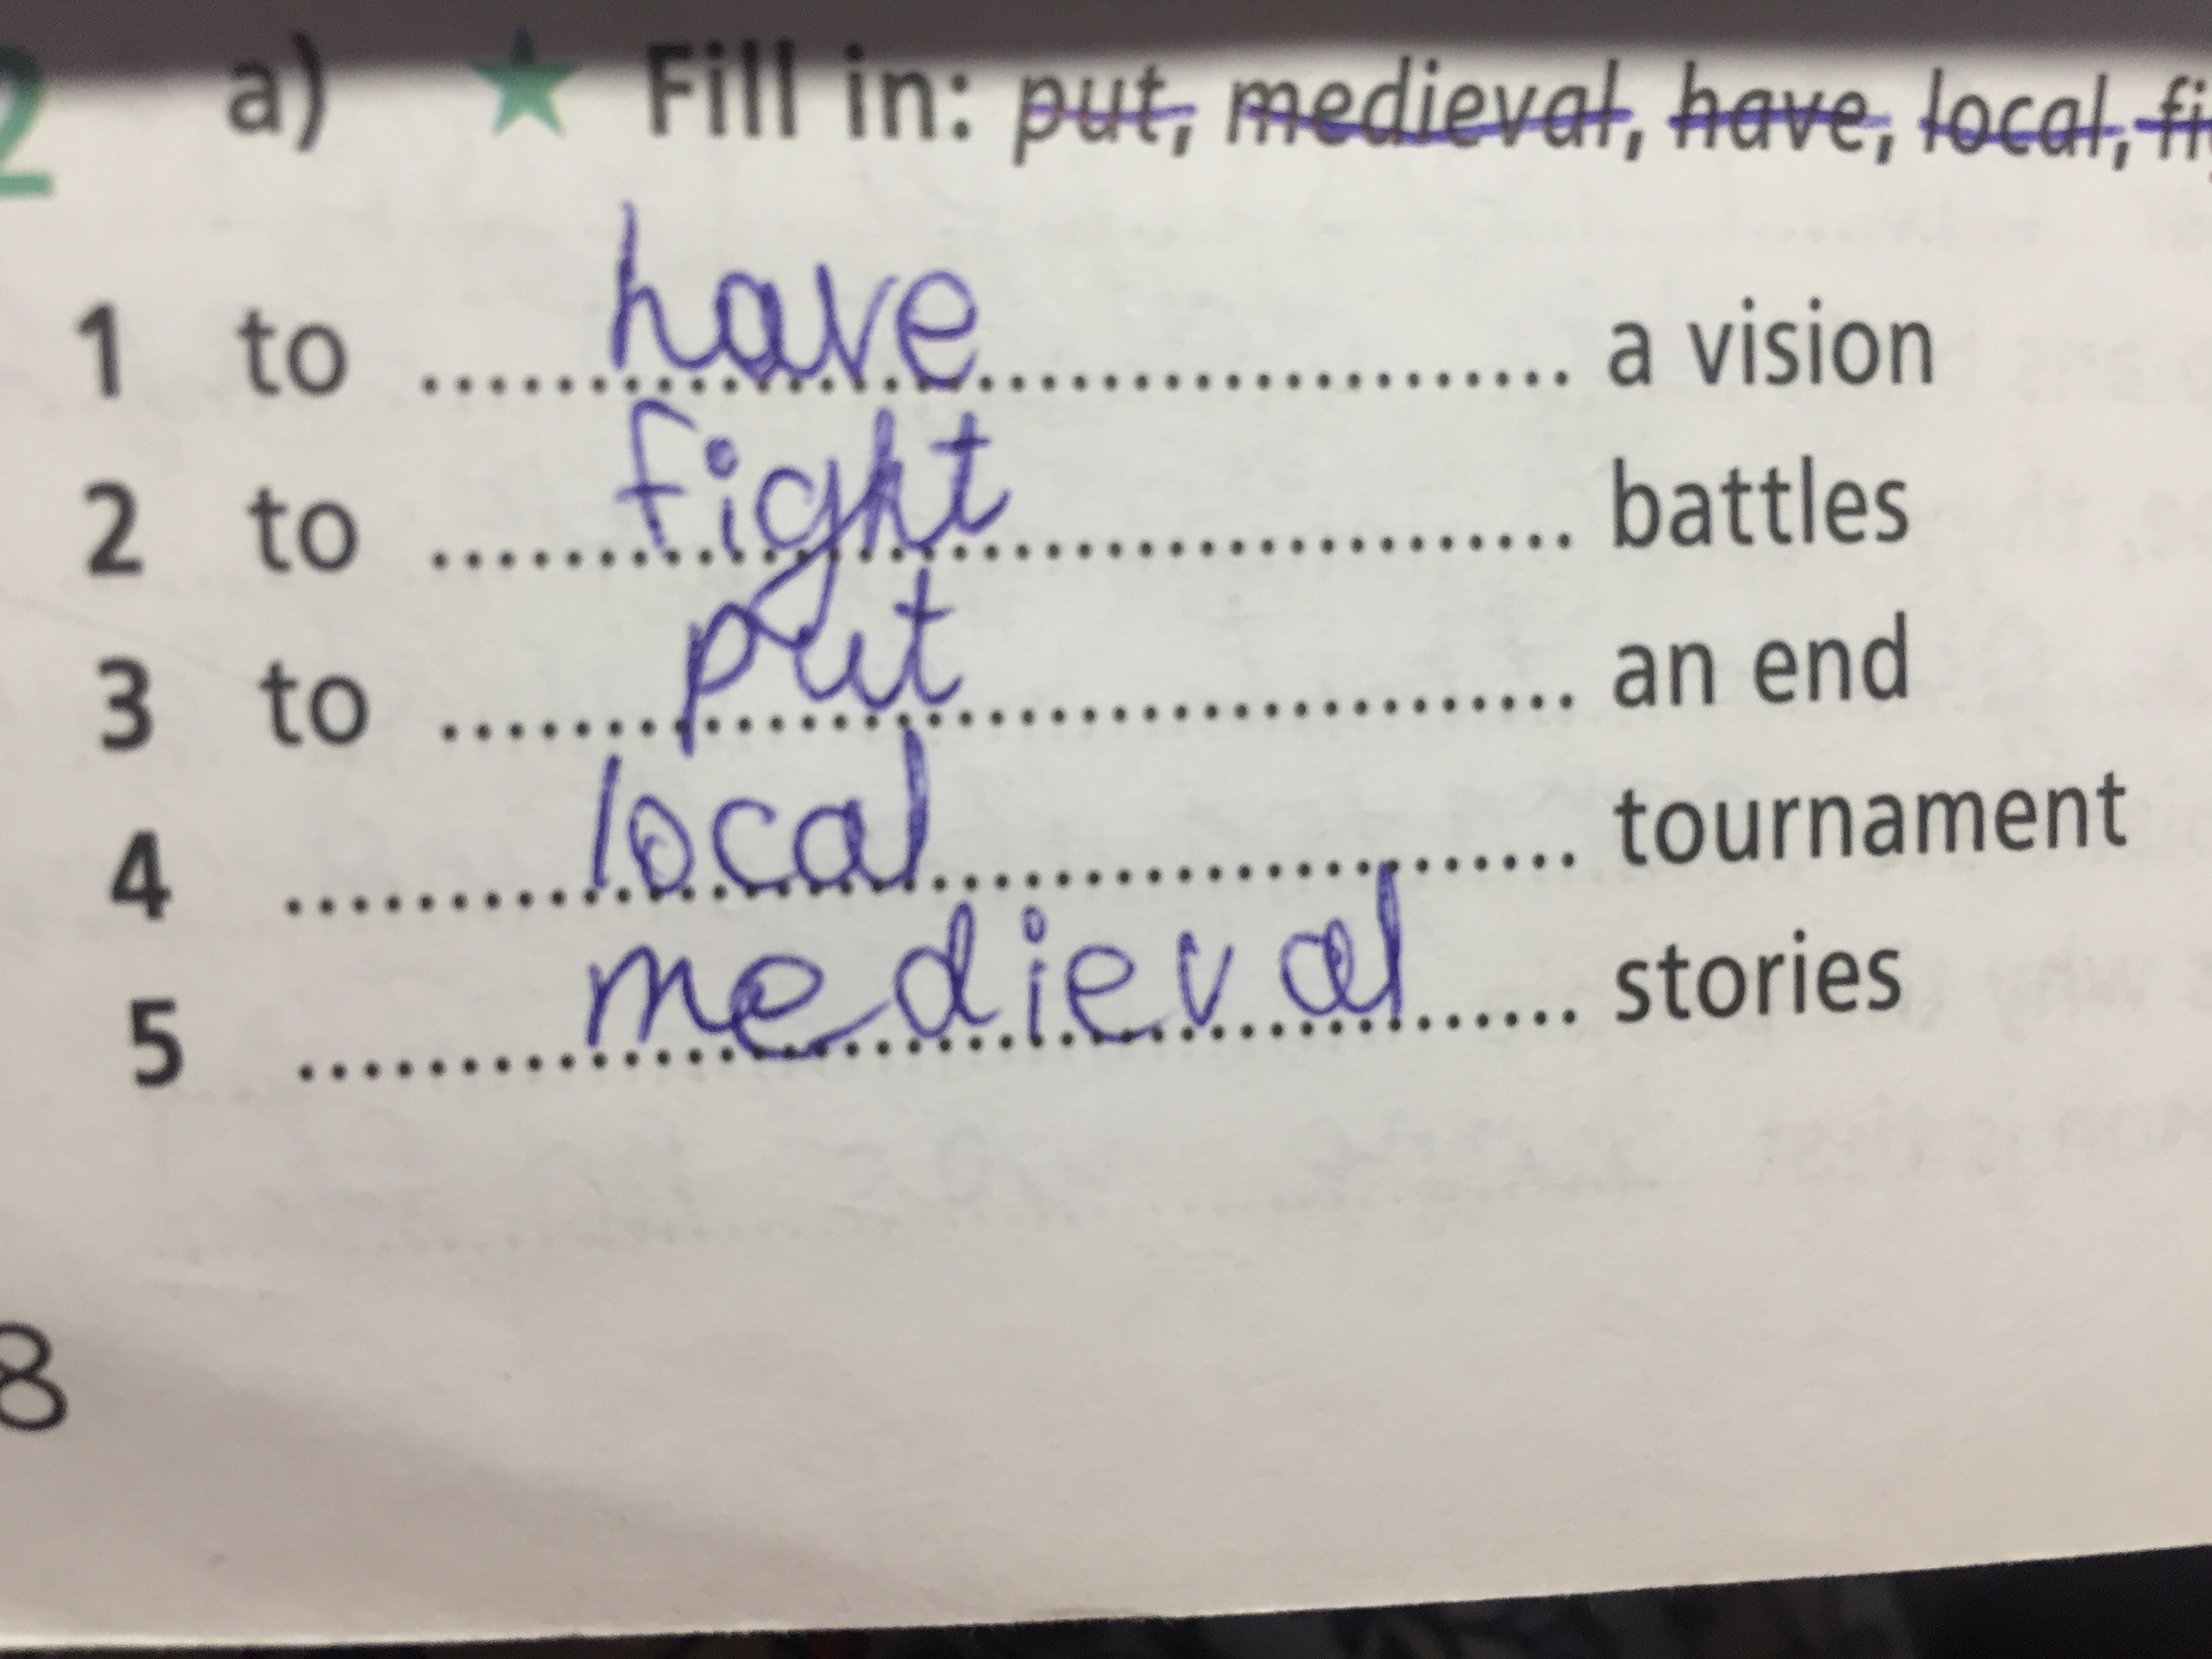 2 a) ★ Fill in: put, medieval, have, local,
1 to have a vision
2 to fight battles
3 to put an end
4 local tournament
5 medieval stories
8